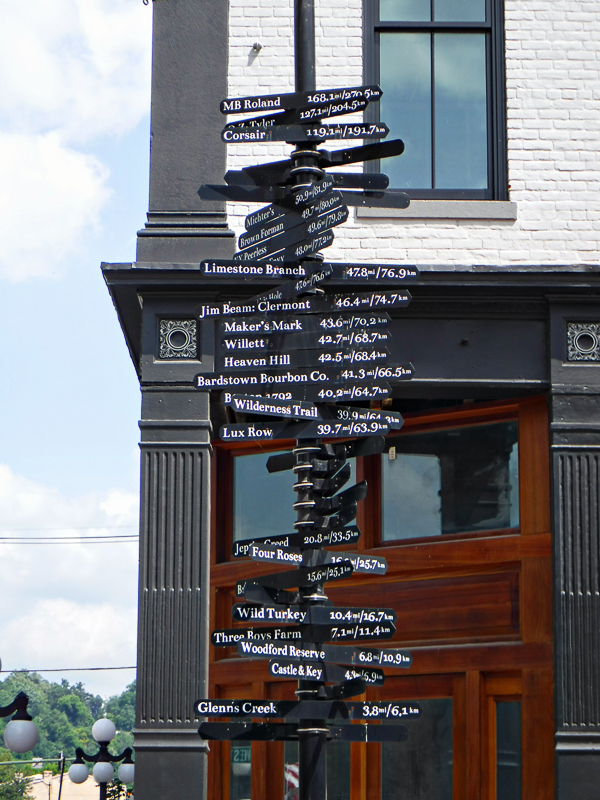 MB Roland 168.1mi/270.5km
Tyler 127.1mi/204.5km
Corsair 119.1mi/191.7km
50.9mi/81.9km
Michter's 49.7mi/80.0km
Brown Forman 49.6mi/79.8km
Peerless 48.0mi/77.2km
Limestone Branch 47.8mi/76.9km
47.6mi/76.6km
Jim Beam: Clermont 46.4mi/74.7km
Maker's Mark 43.6mi/70.2km
Willett 42.7mi/68.7km
Heaven Hill 42.5mi/68.4km
Bardstown Bourbon Co. 41.3mi/66.5km
1792 40.2mi/64.7km
Wilderness Trail 39.9mi/64.2km
Lux Row 39.7mi/63.9km
Creed 20.8mi/33.5km
Four Roses /25.7km
15.6mi/25.1km
Wild Turkey 10.4mi/16.7km
Three Boys Farm 7.1mi/11.4km
Woodford Reserve 6.8mi/10.9km
Castle & Key /5.9km
Glenn's Creek 3.8mi/6.1km